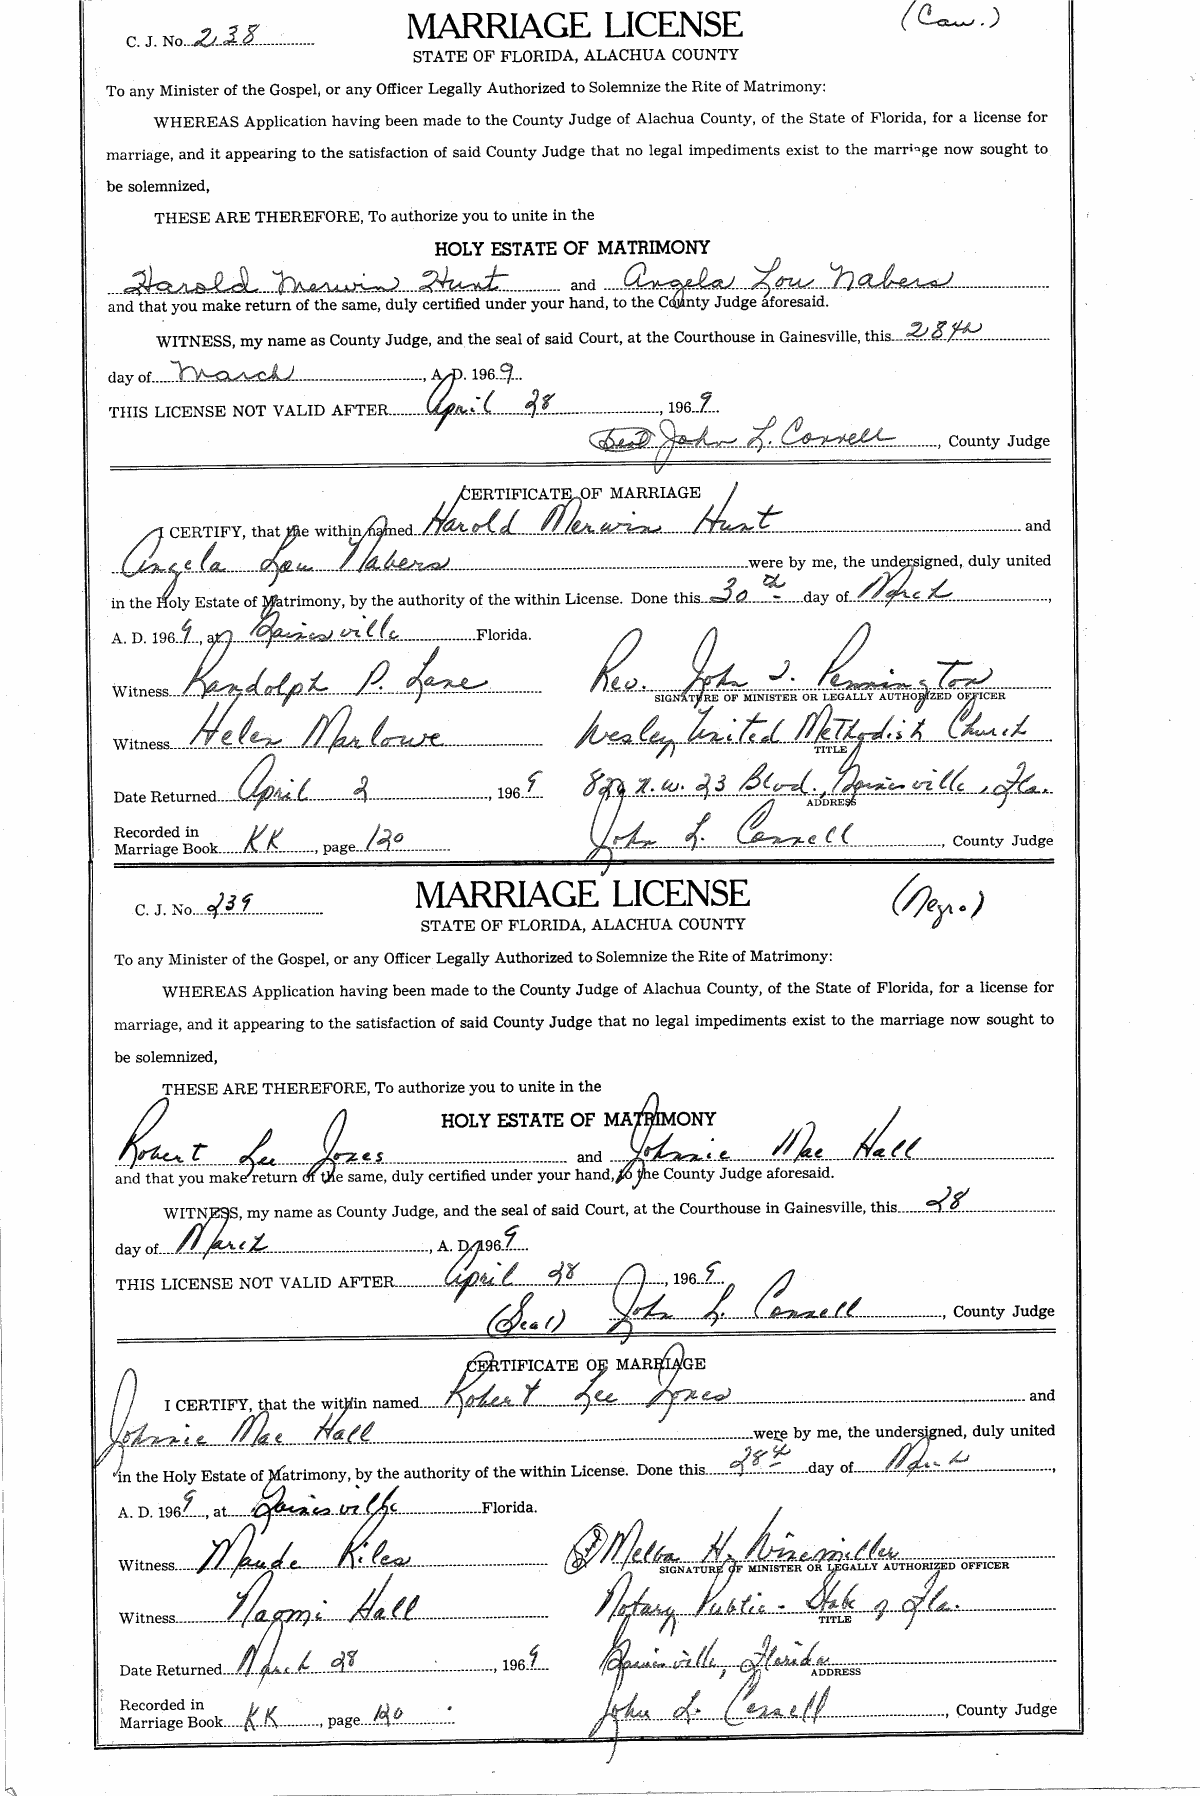 (Cau.)
C. J. No. 238
MARRIAGE LICENSE
STATE OF FLORIDA, ALACHUA COUNTY
To any Minister of the Gospel, or any Officer Legally Authorized to Solemnize the Rite of Matrimony:
WHEREAS Application having been made to the County Judge of Alachua County, of the State of Florida, for a license for
marriage, and it appearing to the satisfaction of said County Judge that no legal impediments exist to the marriage now sought to
be solemnized,
THESE ARE THEREFORE, To authorize you to unite in the
HOLY ESTATE OF MATRIMONY
Harold Merwin Hunt and Angela Lou Nabers
and that you make return of the same, duly certified under your hand, to the County Judge aforesaid.
WITNESS, my name as County Judge, and the seal of said Court, at the Courthouse in Gainesville, this 28th
day of March, A. D. 1969
THIS LICENSE NOT VALID AFTER April 28, 1969
(Seal) John L. Connell, County Judge
CERTIFICATE OF MARRIAGE
I CERTIFY, that the within named Harold Merwin Hunt and
Angela Lou Nabers were by me, the undersigned, duly united
in the Holy Estate of Matrimony, by the authority of the within License. Done this 30th day of March,
A. D. 1969, at Gainesville Florida.
Witness Randolph P. Lane Rev. John J. Pennington
SIGNATURE OF MINISTER OR LEGALLY AUTHORIZED OFFICER
Witness Helen Marlowe Wesley United Methodist Church
TITLE
Date Returned April 2, 1969 829 N.W. 23 Blvd., Gainesville, Fla.
ADDRESS
Recorded in
Marriage Book KK, page 120 John L. Connell, County Judge
C. J. No. 239
MARRIAGE LICENSE
(Negro)
STATE OF FLORIDA, ALACHUA COUNTY
To any Minister of the Gospel, or any Officer Legally Authorized to Solemnize the Rite of Matrimony:
WHEREAS Application having been made to the County Judge of Alachua County, of the State of Florida, for a license for
marriage, and it appearing to the satisfaction of said County Judge that no legal impediments exist to the marriage now sought to
be solemnized,
THESE ARE THEREFORE, To authorize you to unite in the
HOLY ESTATE OF MATRIMONY
Robert Lee Jones and Johnnie Mae Hall
and that you make return of the same, duly certified under your hand, to the County Judge aforesaid.
WITNESS, my name as County Judge, and the seal of said Court, at the Courthouse in Gainesville, this 28
day of March, A. D. 1969
THIS LICENSE NOT VALID AFTER April 28, 1969
(Seal) John L. Connell, County Judge
CERTIFICATE OF MARRIAGE
I CERTIFY, that the within named Robert Lee Jones and
Johnnie Mae Hall were by me, the undersigned, duly united
in the Holy Estate of Matrimony, by the authority of the within License. Done this 28th day of March,
A. D. 1969, at Gainesville Florida.
Witness Maude Kiles Melba H. Winemiller
SIGNATURE OF MINISTER OR LEGALLY AUTHORIZED OFFICER
Witness Naomi Hall Notary Public - State of Fla.
TITLE
Date Returned March 28, 1969 Gainesville, Florida
ADDRESS
Recorded in
Marriage Book KK, page 120 John L. Connell, County Judge